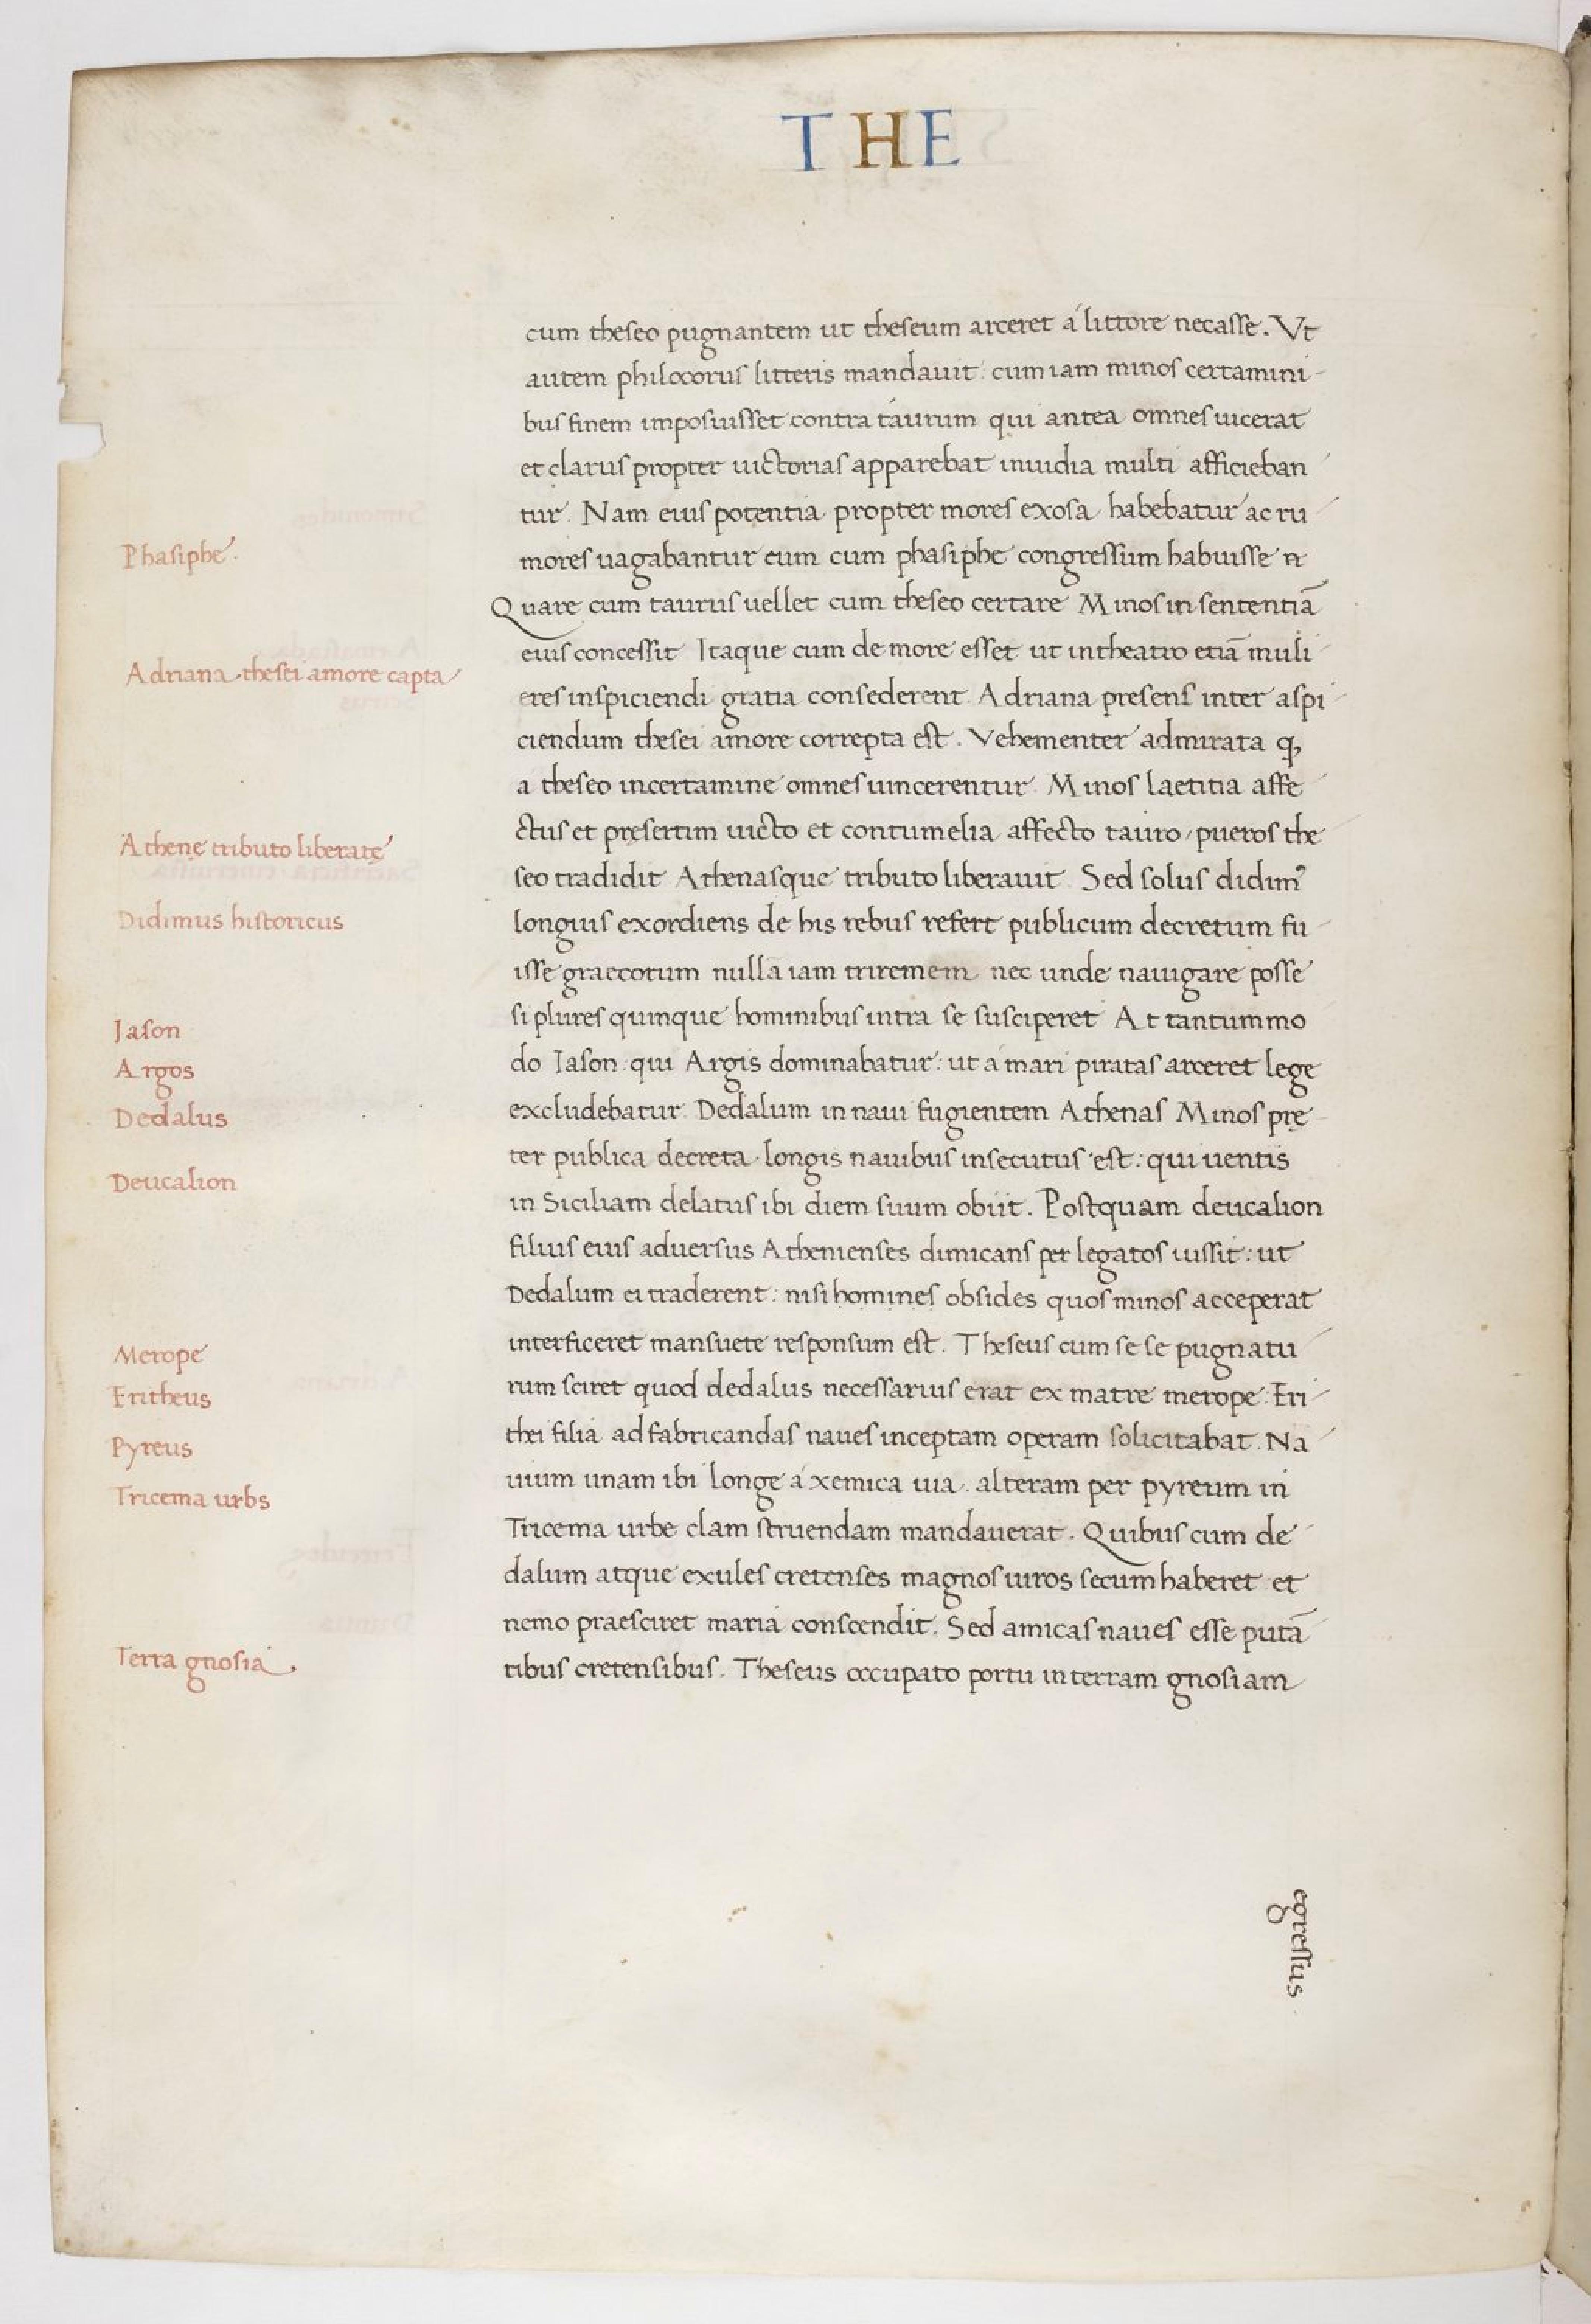 THE
cum theseo pugnantem ut theseum arceret á littore necasse. Vt
autem philocorus litteris mandauit: cum iam minos certamini-
bus finem imposuisset contra táurum qui antea omnes uicerat
et clarus propter uictorias apparebat inuidia multi afficieban-
tur. Nam eius potentia propter mores exosa habebatur ac ru-
Phasiphe.
mores uagabantur eum cum phasiphe congressum habuisse
Quare cum taurus uellet cum theseo certare Minos in sententiā
eius concessit Itaque cum de more esset ut in theatro etiā muli-
Adriana thesei amore capta
eres inspiciendi gratia consederent. Adriana presens inter aspi-
ciendum thesei amore correpta est. Vehementer admirata ꝙ
a theseo in certamine omnes uincerentur. Minos laetitia affe-
Athenę tributo liberatę
ctus et pręsertim uicto et contumelia affecto tauro, pueros the-
seo tradidit Athenasque tributo liberauit. Sed solus didimꝰ
Didimus historicus
longius exordiens de his rebus refert publicum decretum fu-
isse graecorum nulla iam triremem nec unde nauigare posse
si plures quinque hominibus intra se susciperet At tantummo
Jason
Argos
do Iason qui Argis dominabatur: ut á mari piratas arceret lege
Dedalus
excludebatur. Dedalum in naui fugientem Athenas Minos pre-
ter publica decreta longis nauibus insecutus est: qui uentis
Deucalion
in Siciliam delatus ibi diem suum obiit. Postquam deucalion
filius eius aduersus Athenienses dimicans per legatos iussit: ut
Dedalum ei traderent: nisi homines obsides quos minos acceperat
Merope
interficeret mansuete responsum est. Theseus cum se se pugnatu-
Eritheus
rum sciret quod dedalus necessarius erat ex matre merope Eri-
Pyreus
thei filia ad fabricandas naues inceptam operam solicitabat. Na-
Tricema urbs
uium unam ibi longe á xemica uia. alteram per pyreum in
Tricema urbe clam struendam mandauerat. Quibus cum de-
dalum atque exules cretenses magnos uiros secum haberet et
nemo praesciret maria conscendit. Sed amicas naues esse putā-
Terra gnosia
tibus cretensibus. Theseus occupato portu in terram gnosiam
egressus